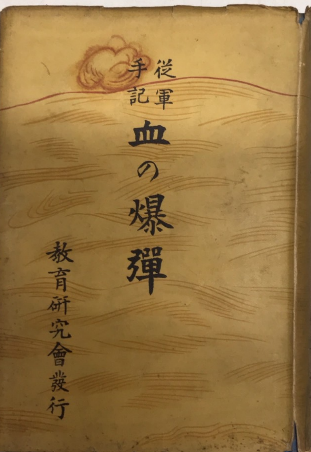 従軍
手記
血の爆彈
教育研究會發行